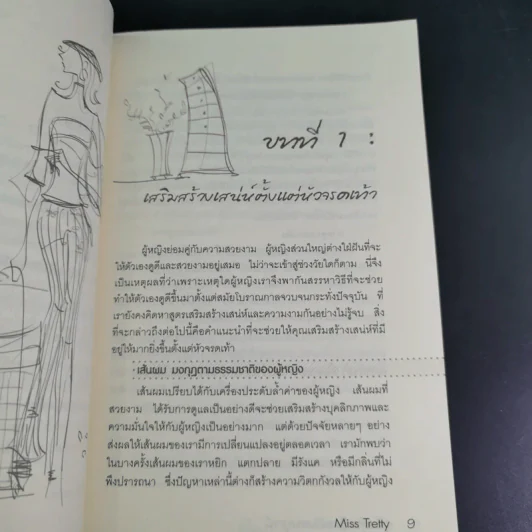 บทที่ 1 :
เสริมสร้างเสน่ห์ตั้งแต่หัวจรดเท้า
ผู้หญิงย่อมคู่กับความสวยงาม ผู้หญิงส่วนใหญ่ต่างใฝ่ฝันที่จะ
ให้ตัวเองดูดีและสวยงามอยู่เสมอ ไม่ว่าจะเข้าสู่ช่วงวัยใดก็ตาม นี่จึง
เป็นเหตุผลที่ว่าเพราะเหตุใดผู้หญิงเราจึงพากันสรรหาวิธีที่จะช่วย
ทำให้ตัวเองดูดีขึ้นมาตั้งแต่สมัยโบราณกาลจวบจนกระทั่งปัจจุบัน ที่
เรายังคงคิดหาสูตรเสริมสร้างเสน่ห์และความงามกันอย่างไม่รู้จบ สิ่ง
ที่จะกล่าวถึงต่อไปนี้คือคำแนะนำที่จะช่วยให้คุณเสริมสร้างเสน่ห์ที่มี
อยู่ให้มากยิ่งขึ้นตั้งแต่หัวจรดเท้า
เส้นผม มงกุฎตามธรรมชาติของผู้หญิง
เส้นผมเปรียบได้กับเครื่องประดับล้ำค่าของผู้หญิง เส้นผมที่
สวยงาม ได้รับการดูแลเป็นอย่างดีจะช่วยเสริมสร้างบุคลิกภาพและ
ความมั่นใจให้กับผู้หญิงเป็นอย่างมาก แต่ด้วยปัจจัยหลายๆ อย่าง
ส่งผลให้เส้นผมของเรามีการเปลี่ยนแปลงอยู่ตลอดเวลา เรามักพบว่า
ในบางครั้งเส้นผมของเราหยิก แตกปลาย มีรังแค หรือมีกลิ่นที่ไม่
พึงปรารถนา ซึ่งปัญหาเหล่านี้ต่างก็สร้างความวิตกกังวลให้กับผู้หญิง
Miss Tretty 9